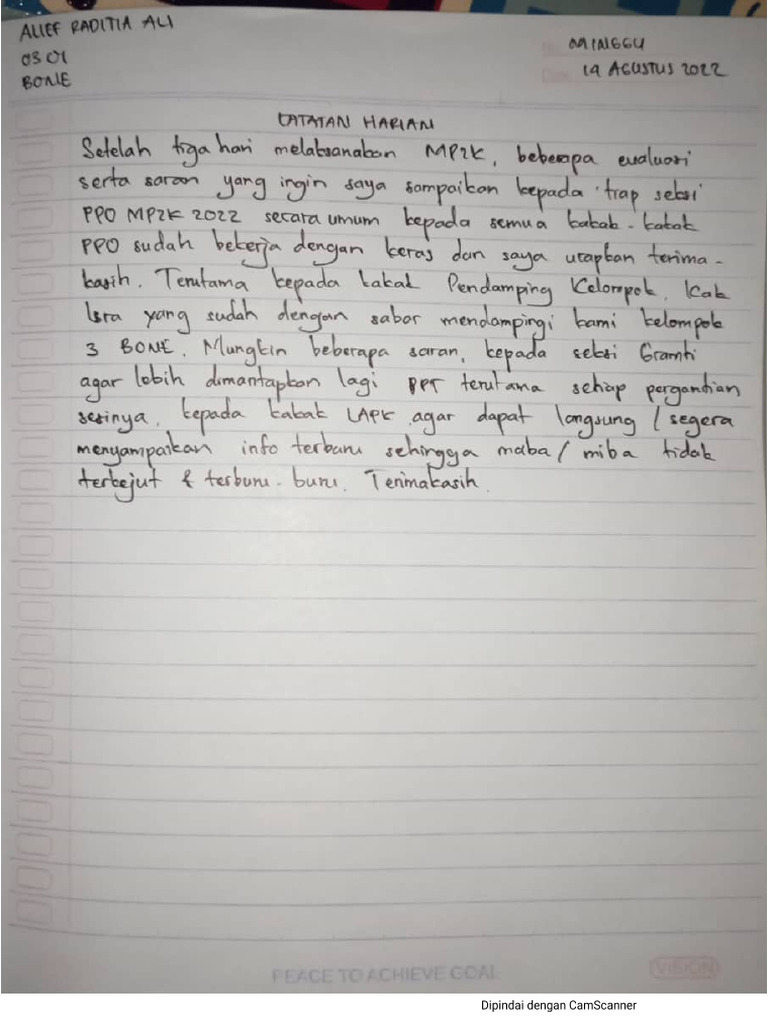 ALIEF RADITIA ALI
MINGGU
03 01
14 AGUSTUS 2022
BONE
CATATAN HARIAN
Setelah tiga hari melaksanakan MP2K, beberapa evaluasi
serta saran yang ingin saya sampaikan kepada tiap seksi
PPO MP2K 2022 secara umum kepada semua kakak-kakak
PPO sudah bekerja dengan keras dan saya ucapkan terima-
kasih. Terutama kepada kakak Pendamping Kelompok, Kak
Isra yang sudah dengan sabar mendampingi kami kelompok
3 BONE. Mungkin beberapa saran, kepada seksi
agar lebih dimantapkan lagi PPT terutama setiap pergantian
sesinya, kepada kakak LAPK agar dapat langsung / segera
menyampaikan info terbaru sehingga maba / miba tidak
terkejut & terburu-buru. Terimakasih.
PEACE TO ACHIEVE GOAL
VISION
Dipindai dengan CamScanner